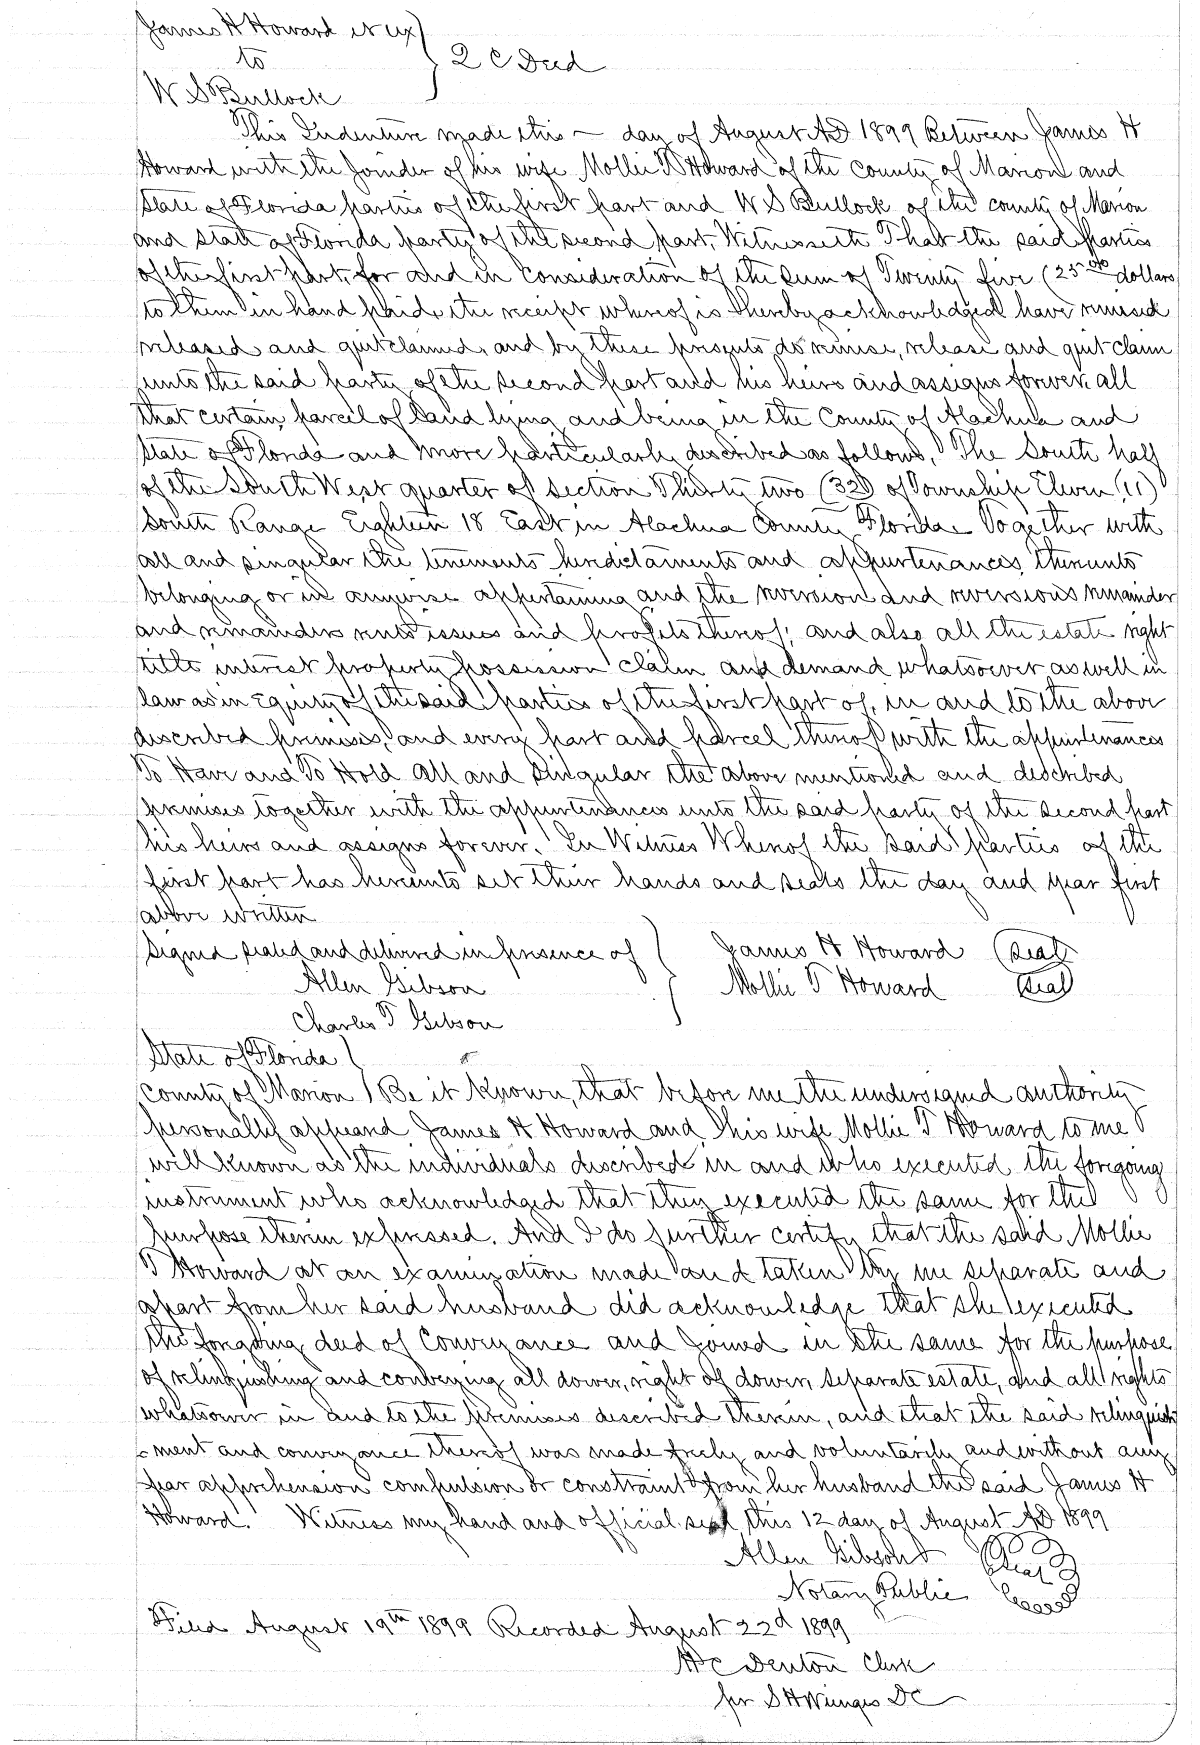 James H Howard et ux
to
W S Bullock
} Q C Deed
This Indenture made this — day of August AD 1899 Between James H
Howard with the joinder of his wife Mollie T Howard of the County of Marion and
State of Florida parties of the first part and W S Bullock of the county of Marion
and State of Florida party of the second part, Witnesseth That the said parties
of the first part, for and in consideration of the sum of Twenty five (25 00 dollars
to them in hand paid, the receipt whereof is hereby acknowledged have remised
released and quitclaimed, and by these presents do remise, release and quit claim
unto the said party of the second part and his heirs and assigns forever all
that certain parcel of land lying and being in the County of Alachua and
State of Florida and more particularly described as follows. The South half
of the South West quarter of Section Thirty two (32) of Township Eleven (11)
South Range Eighteen 18 East in Alachua County Florida Together with
all and singular the tenements herdictaments and appurtenances thereunto
belonging or in anywise appertaining and the reversion and reversions remainder
and remainders rents issues and profits thereof; and also all the estate right
title interest property possession claim and demand whatsoever as well in
law as in Equity of the said parties of the first part of, in and to the above
described premises, and every part and parcel thereof with the appurtenances
To Have and To Hold All and Singular the above mentioned and described
premises together with the appurtenances unto the said party of the second part
his heirs and assigns forever. In Witness Whereof the said parties of the
first part has hereunto set their hands and seals the day and year first
above written
Signed sealed and delivered in presence of } James H Howard (Seal)
Allen Gibson Mollie T Howard (Seal)
Charles T Gibson
State of Florida )
County of Marion ) Be it known, that before me the undersigned authority
personally appeard James H Howard and his wife Mollie T Howard to me
well known as the individuals described in and who executed the foregoing
instrument who acknowledged that they executed the same for the
purpose therein expressed. And I do further certify that the said Mollie
T Howard at an examination made and taken by me separate and
apart from her said husband did acknowledge that she executed
the forgoing deed of Conveyance and joined in the same for the purpose
of relinquishing and conveying all dower, right of dower, separate estate, and all rights
whatsoever in and to the premises described therein, and that the said relinquish
-ment and conveyance thereof was made freely and voluntarily and without any
fear apprehension compulsion or constraint from her husband the said James H
Howard. Witness my hand and official seal this 12 day of August AD 1899
Allen Gibson (Seal)
Notary Public
Filed August 19th 1899 Recorded August 22d 1899
H C Denton Clerk
per S H Wienges DC